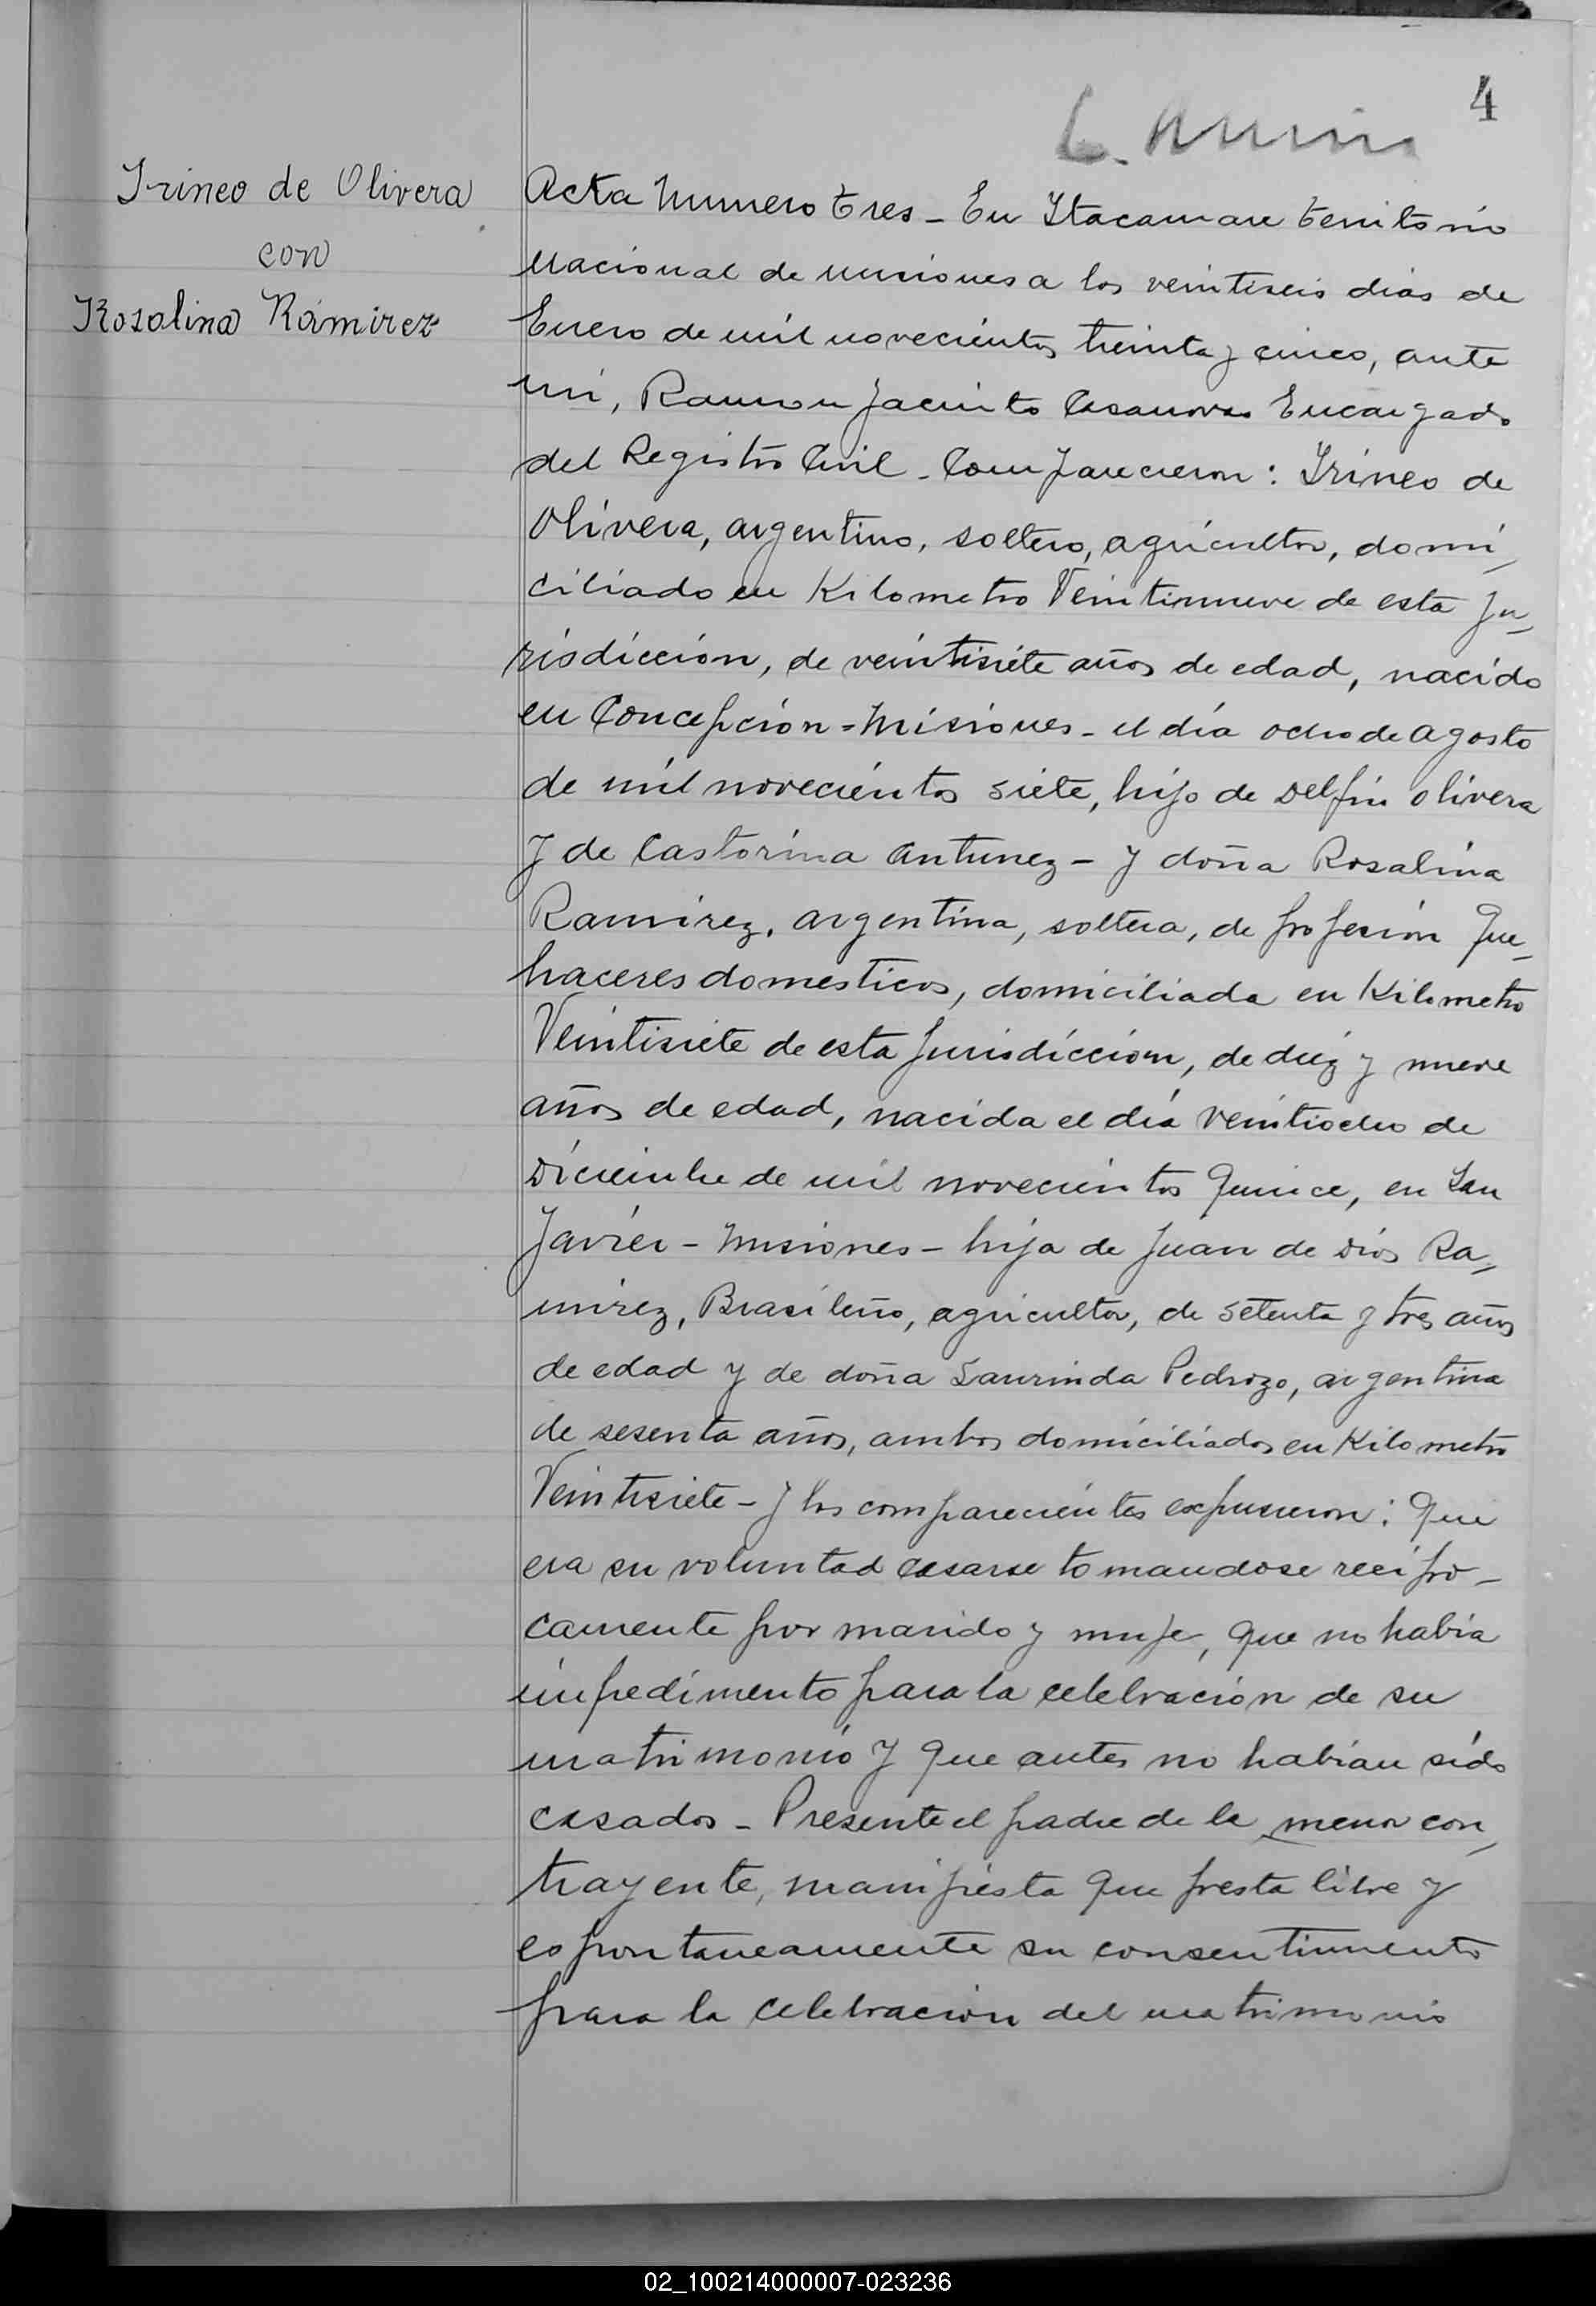 4
Irineo de Olivera
con
Rosalina Rámirez
Acta Numero tres - En Itacaruare territorio
Nacional de misiones a los veintiseis dias de
Enero de mil novecientos treinta y cinco, ante
mi, Ramon Jacinto Casanovas Encargado
del Registro Civil - Comparecieron: Irineo de
Olivera, argentino, soltero, agricultor, domi-
ciliado en Kilometro Veintinueve de esta Ju-
risdicción, de veintisiete años de edad, nacido
en Concepción = Misiones - el día ocho de agosto
de mil novecientos siete, hijo de Delfin Olivera
y de Castorina Antunez - y doña Rosalina
Ramirez, argentina, soltera, de profesion Que-
haceres domesticos, domiciliada en Kilometro
Veintisiete de esta Jurisdiccion, de diez y nueve
años de edad, nacida el día veintiocho de
Diciembre de mil novecientos quince, en San
Javier - Misiones - hija de Juan de Dios Ra-
mirez, Brasileño, agricultor, de setenta y tres años
de edad y de doña Laurinda Pedrozo, argentina
de sesenta años, ambos domiciliados en Kilometro
Veintisiete - y los comparecientes expusieron: Que
era su voluntad casarse tomandose recipro-
camente por marido y muje, que no habia
impedimento para la celebracion de su
matrimonio y que antes no habian sido
casados - Presente el padre de la menor con-
trayente, manifiesta que presta libre y
espontaneamente su consentimiento
para la celebracion del matrimonio
02_100214000007-023236